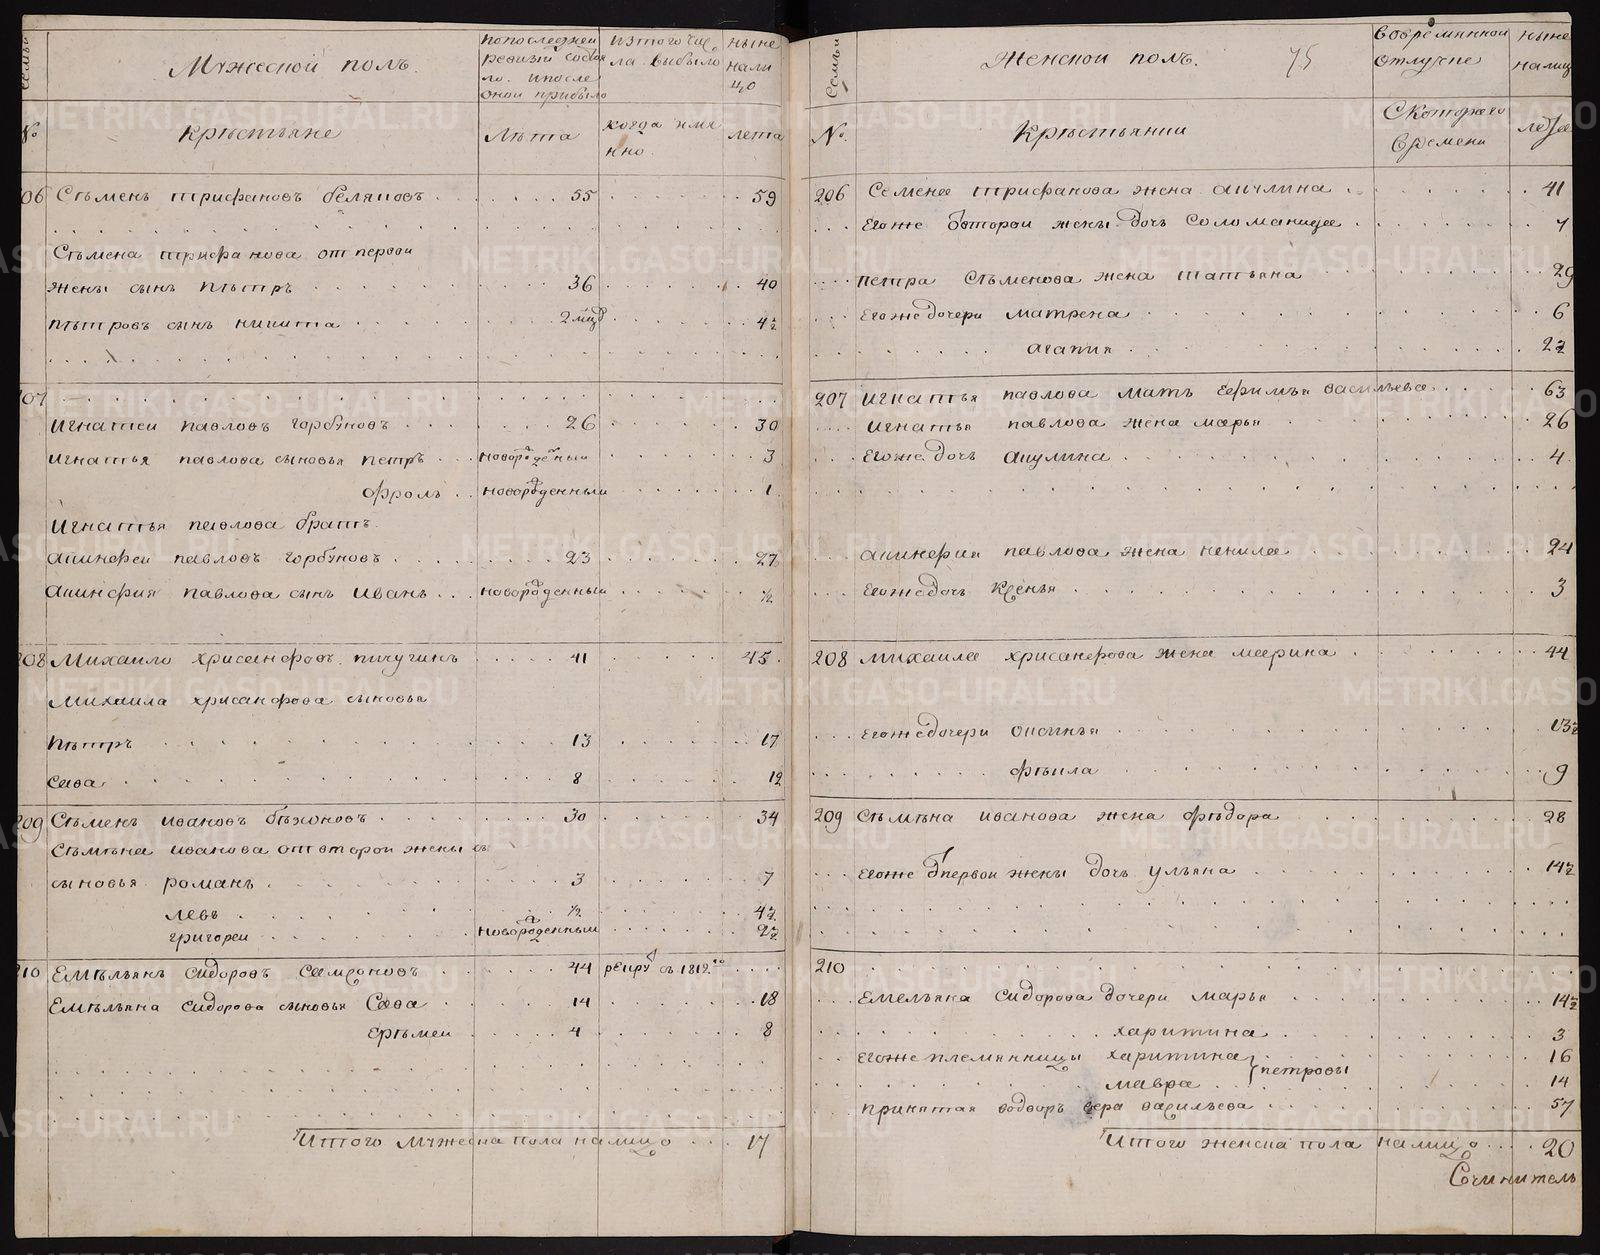 Семьи
Мужеской полъ.
попоследней ревизии состояло. ипосле оной прибыло
изтого числа выбыло
ныне налицо
№
крестьяне
Лѣта
когда имянно
лета
206 Сѣменъ трифановъ беляновъ 55 59
Сѣмена трифанова от первой
жены сынъ пѣтръ 36 40
пѣтровъ сынъ никита 2 мца 4½
207
игнатей павловъ горбуновъ 26 30
игнатья павлова сыновья петръ новорожденный 3
фролъ новорожденный 1
игнатья павлова братъ
акинфей павловъ горбуновъ 23 27
акинфия павлова сынъ иванъ новорожденный ½
208 михайло хрисанфовъ пичугинъ 41 45
михаила хрисанфова сыновья
пѣтръ 13 17
сава 8 12
209 Сѣменъ ивановъ бѣзоновъ 30 34
Сѣмѣна иванова отвторой жены
сыновья романъ 3 7
левъ ½ 4½
григорей новорожденный 2½
210 Емѣльянъ сидоровъ самсоновъ 44 рекру въ 1812го
Емѣльяна сидорова сыновья Сава 14 18
ерѣмей 4 8
Итого мужеска пола налицо 17
Семьи
Женской полъ.
75
вовременной отлучке
ныне налицо
№
крѣстьянки
Скоторого времени
лета
206 Семена трифанова жена акулина 41
Егоже второй жены дочь соломанида 7
петра сѣменова жена татьяна 29
Егоже дочери матрена 6
агапия 2½
207 игнатья павлова мать ефимья васильева 63
игнатья павлова жена марья 26
Егоже дочь акулина 4
акинфия павлова жена ненила 24
Егоже дочь ксенья 3
208 михаила хрисанфова жена марина 44
Егоже дочери аксинья 13½
фѣкла 9
209 Сѣмѣна иванова жена фѣдора 28
Егоже первой жены дочь ульяна 14½
210
Емельяна сидорова дочери марья 14½
харитина 3
Егоже племянницы харитина 16
мавра петровы 14
принятая водворъ вера васильева 57
Итого женска пола налицо 20
Сочинитель
METRIKI.GASO-URAL.RU